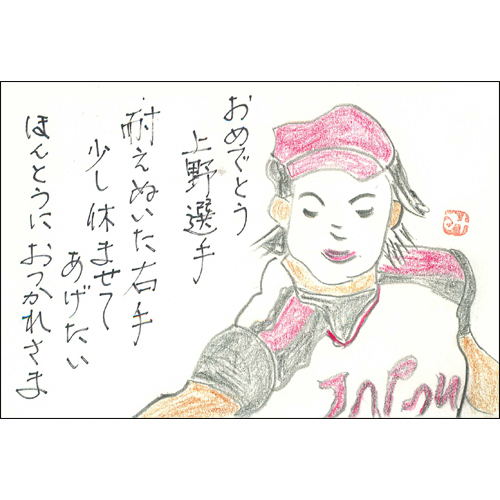 おめでとう
上野選手
耐えぬいた右手
少し休ませて
あげたい
ほんとうにおつかれさま
JAPAN